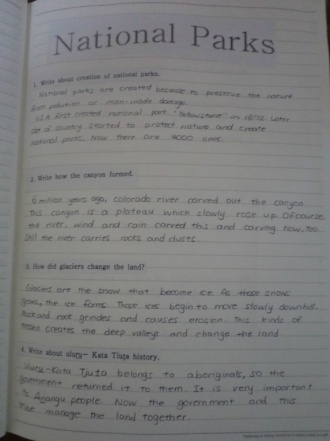 National Parks
1. Write about creation of national parks.
National parks are created because to preserve the nature
from pollution or man-made damage.
U.S.A first created national park "Yellowstone" in 1872. Later
of country started to protect nature and create
national parks. Now there are 4000 ones.
2. Write how the canyon formed.
6 million years ago, colorado river carved out the canyon.
This canyon is a plateau which slowly rose up. Of course
the river, wind and rain carved this and carving now, too.
Still the river carries rocks and dusts.
3. How did glaciers change the land?
Glaciers are the snow that become ice. As those snows
grows, the ice forms. Those ices begin to move slowly downhill.
Rock and root grindes and causes erosion. This kinds of
creates the deep valleys and change the land
4. Write about uluru- Kata Tjuta history.
Uluru-Kata Tjuta belongs to aboriginals, so the
government returned it to them. It is very important
to Anangu people. Now the government and this
tribe manage the land together.